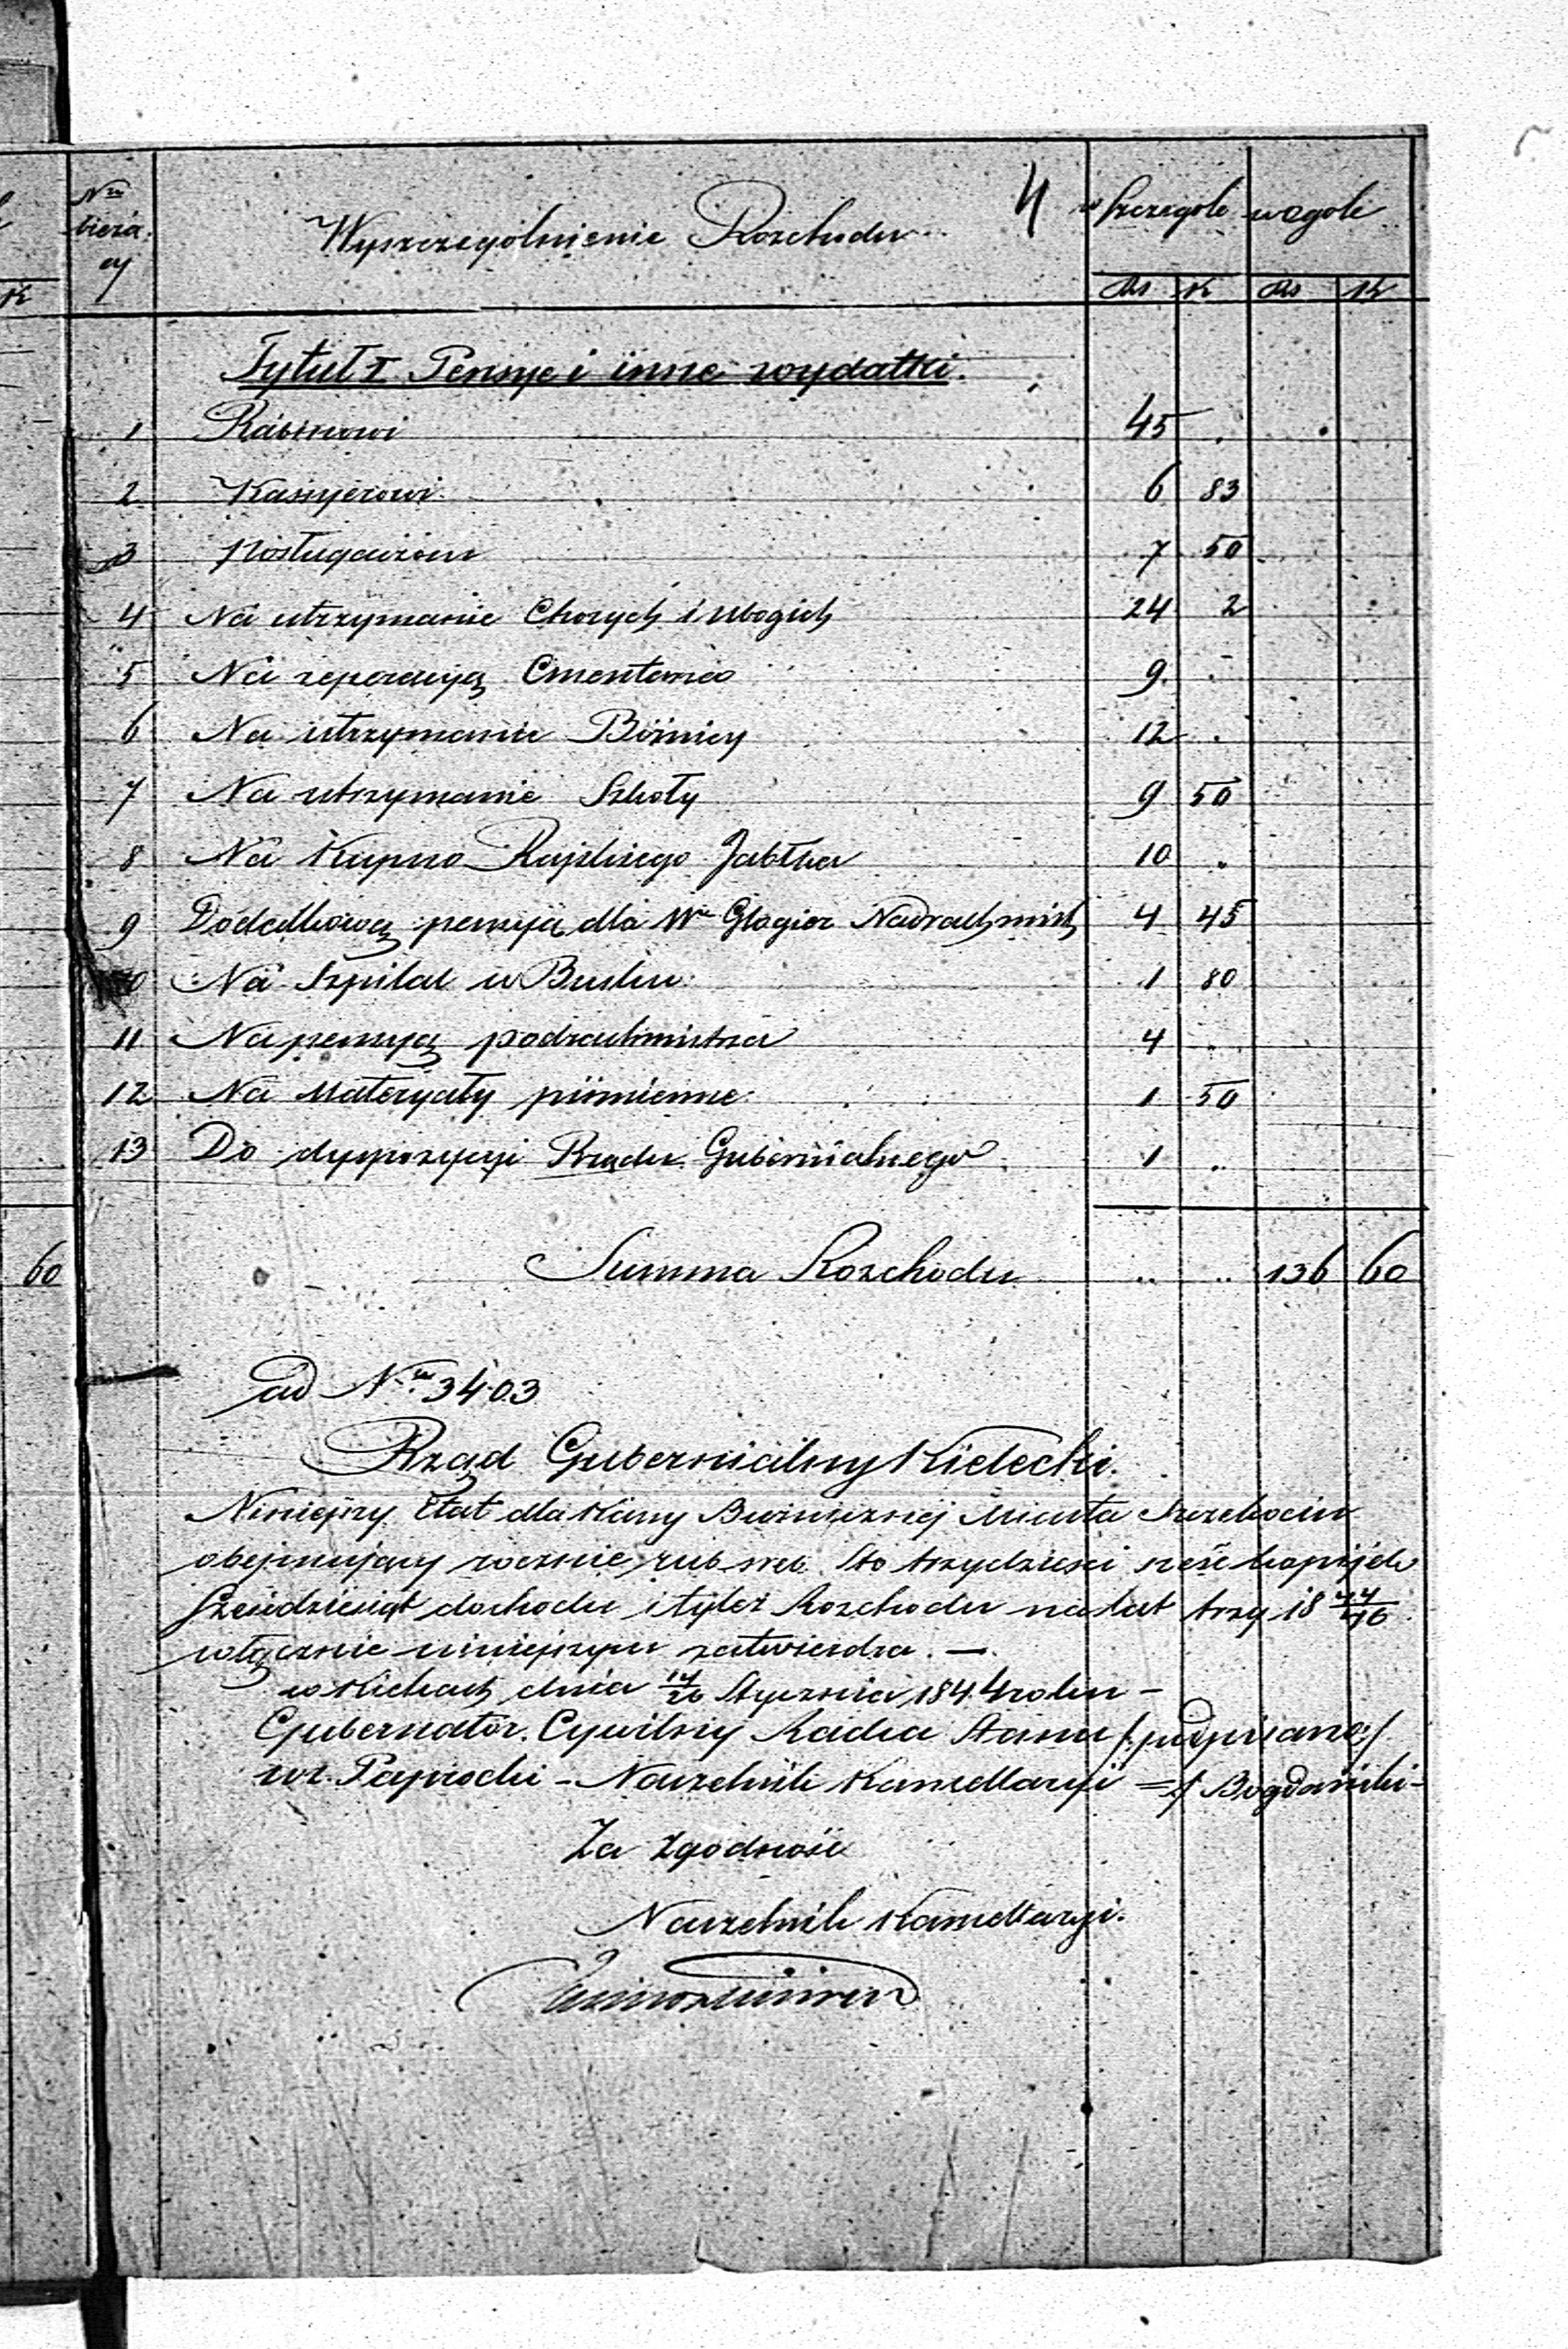 Nru bieżą
cy
Wyszczególnienie Rozchodu 4 w szczególe wogole
K Rs K Rs K
Tytuł I Pensye i inne wydatki.
1 Rabinowi 45 .
2 Kasyerowi 6 83
3 Posługaczom 7 50
4 Na utrzymanie Chorych i ubogich 24 2
5 Na reperacyą Cmentarza 9. -
6 Na utrzymanie Bóżnicy 12 .
7 Na utrzymanie Szkoły 9 50
8 Na Kupno Rajskiego Jabłka 10 "
9 Dodatkową pensyą dla Wo Glogier Nadrachmist 4 45
10 Na Szpital w Busku 1 80
11 Na pensyą podrachmistrza 4 "
12 Na Materyały piśmienne 1 50
13 Do dyspozycyi Rządu Gubernialnego 1 "
60 Summa Rozchodu " " 136 60
ad Nru 3403
Rząd Gubernialny Kielecki.
Niniejszy Etat dla Kassy Bużnicznéj Miasta Szczekocin
obejmujący rocznie rub. sreb. Sto trzydzieści sześć kopijek
Sześćdziesiąt dochodu i tyleż Rozchodu na lat trzy 18 44/46
włącznie niniejszym zatwierdza. —
w Kielcach dnia 14/26 Stycznia 1844 roku -
Gubernator Cywilny Radca Stanu /: podpisano :/
wz. Paprocki - Naczelnik Kancellaryi =/ Bogdański -
Za Zgodność
Naczelnik Kancellaryi.